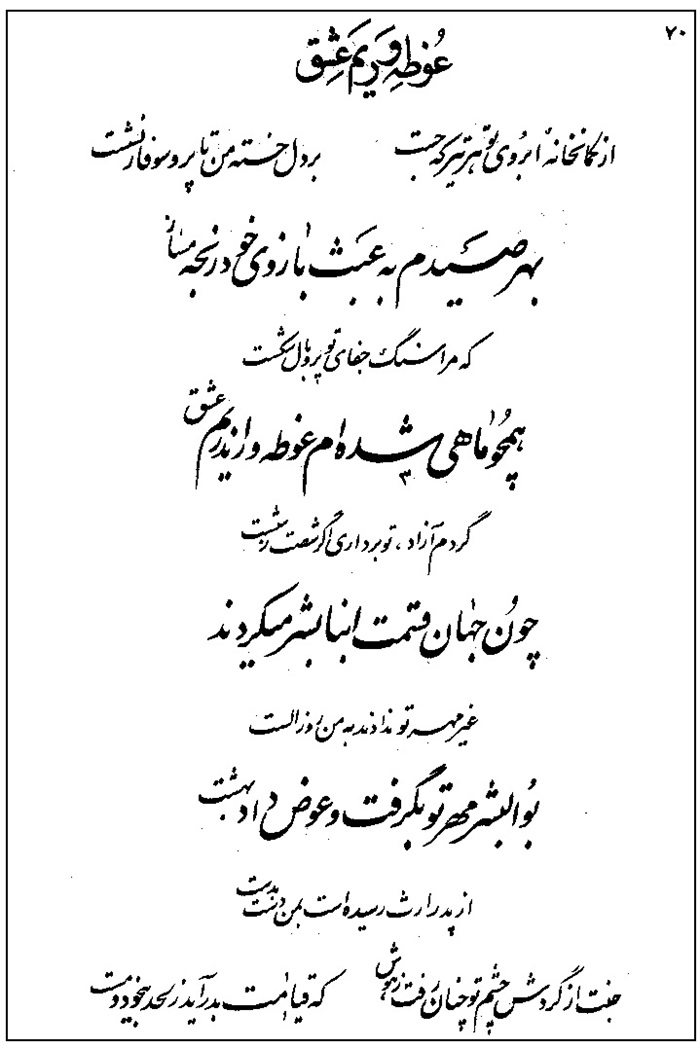 ۷۰
غوطه ور یم عشق
از کمانخانه ابروی تو هر تیر که جست بر دل خسته من تا پر و سوفار نشست
بهر صیدم به عبث بازوی خود رنجه مساز
که مرا سنگ جفای تو پر و بال شکست
همچو ماهی شده ام غوطه ور اندر یم عشق
گردم آزاد، تو برداری اگر شصت ز شست
چون جهان قسمت ابنا بشر میکردند
غیر مهر تو ندادند به من روز الست
بوالبشر مهر تو بگرفت و عوض داد بهشت
از پدر ارث رسیده است بمن دست بدست
جنت از گردش چشم تو چنان رفت ز هوش
که قیامت بدر آید ز لحد بیخود و مست